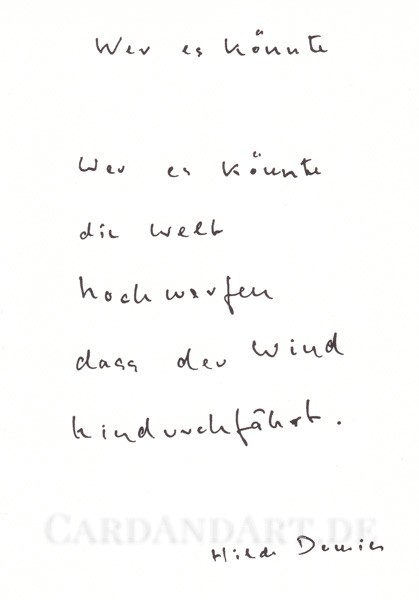 Wer es könnte
Wer es könnte
die Welt
hochwerfen
dass der Wind
hindurchfährt.
CARDANDART.DE
Hilde Domin